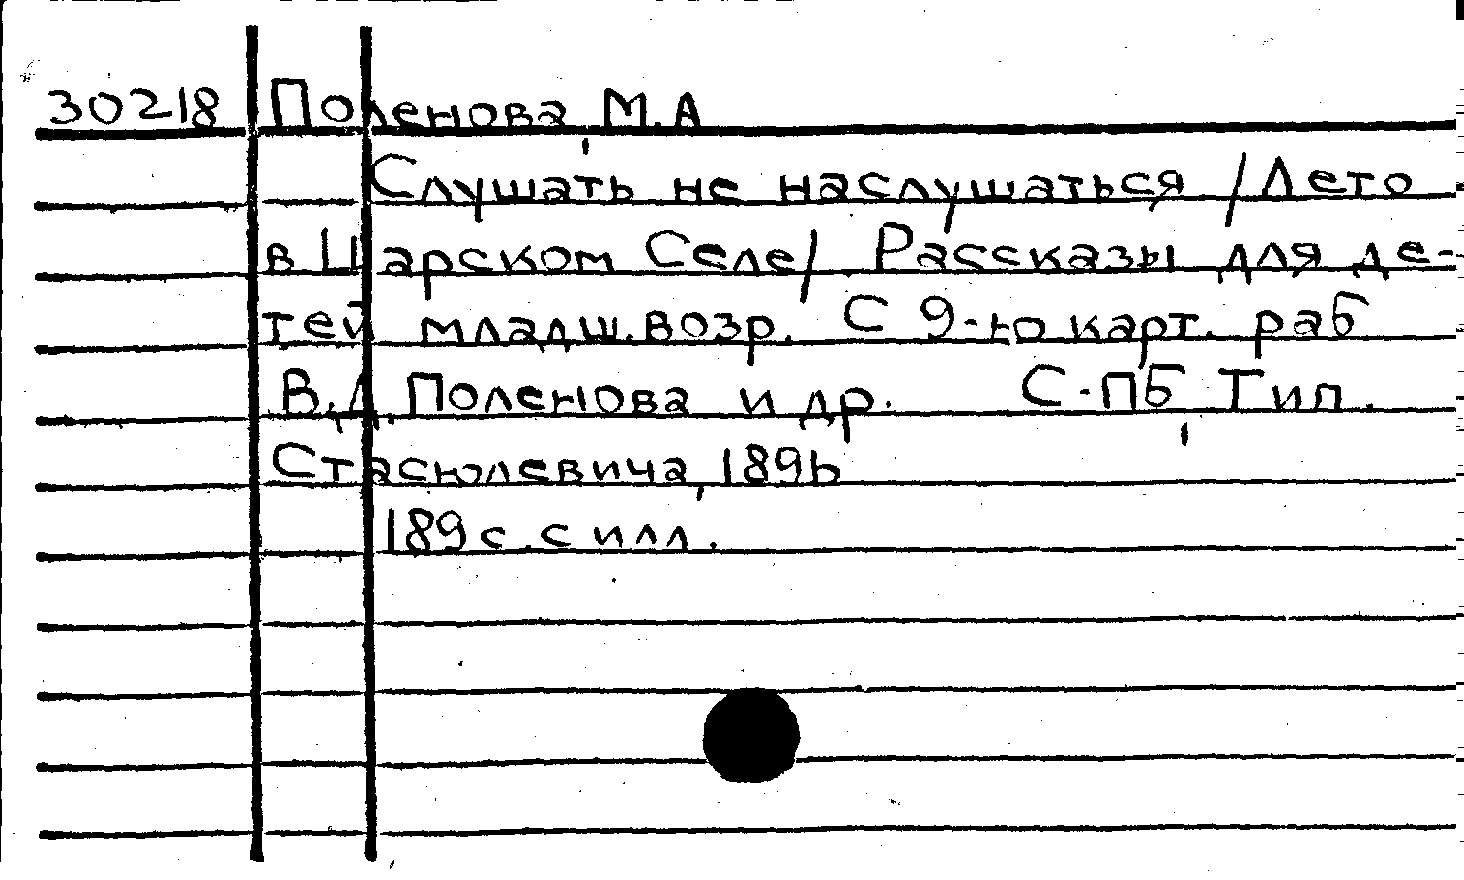 30218 Поленова, М.А
Слушать не наслушаться /Лето
в Царском Селе/ Рассказы для де-
тей младш.возр. С 9-ю карт. раб
В.Д.Поленова и др. С-ПБ, Тип.
Стасюлевича, 1896
189 с. с илл.